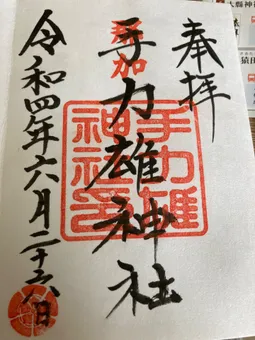 奉拝
那加
手力雄神社
令和四年六月二十六日
手力雄
神社印
縣神
猿田